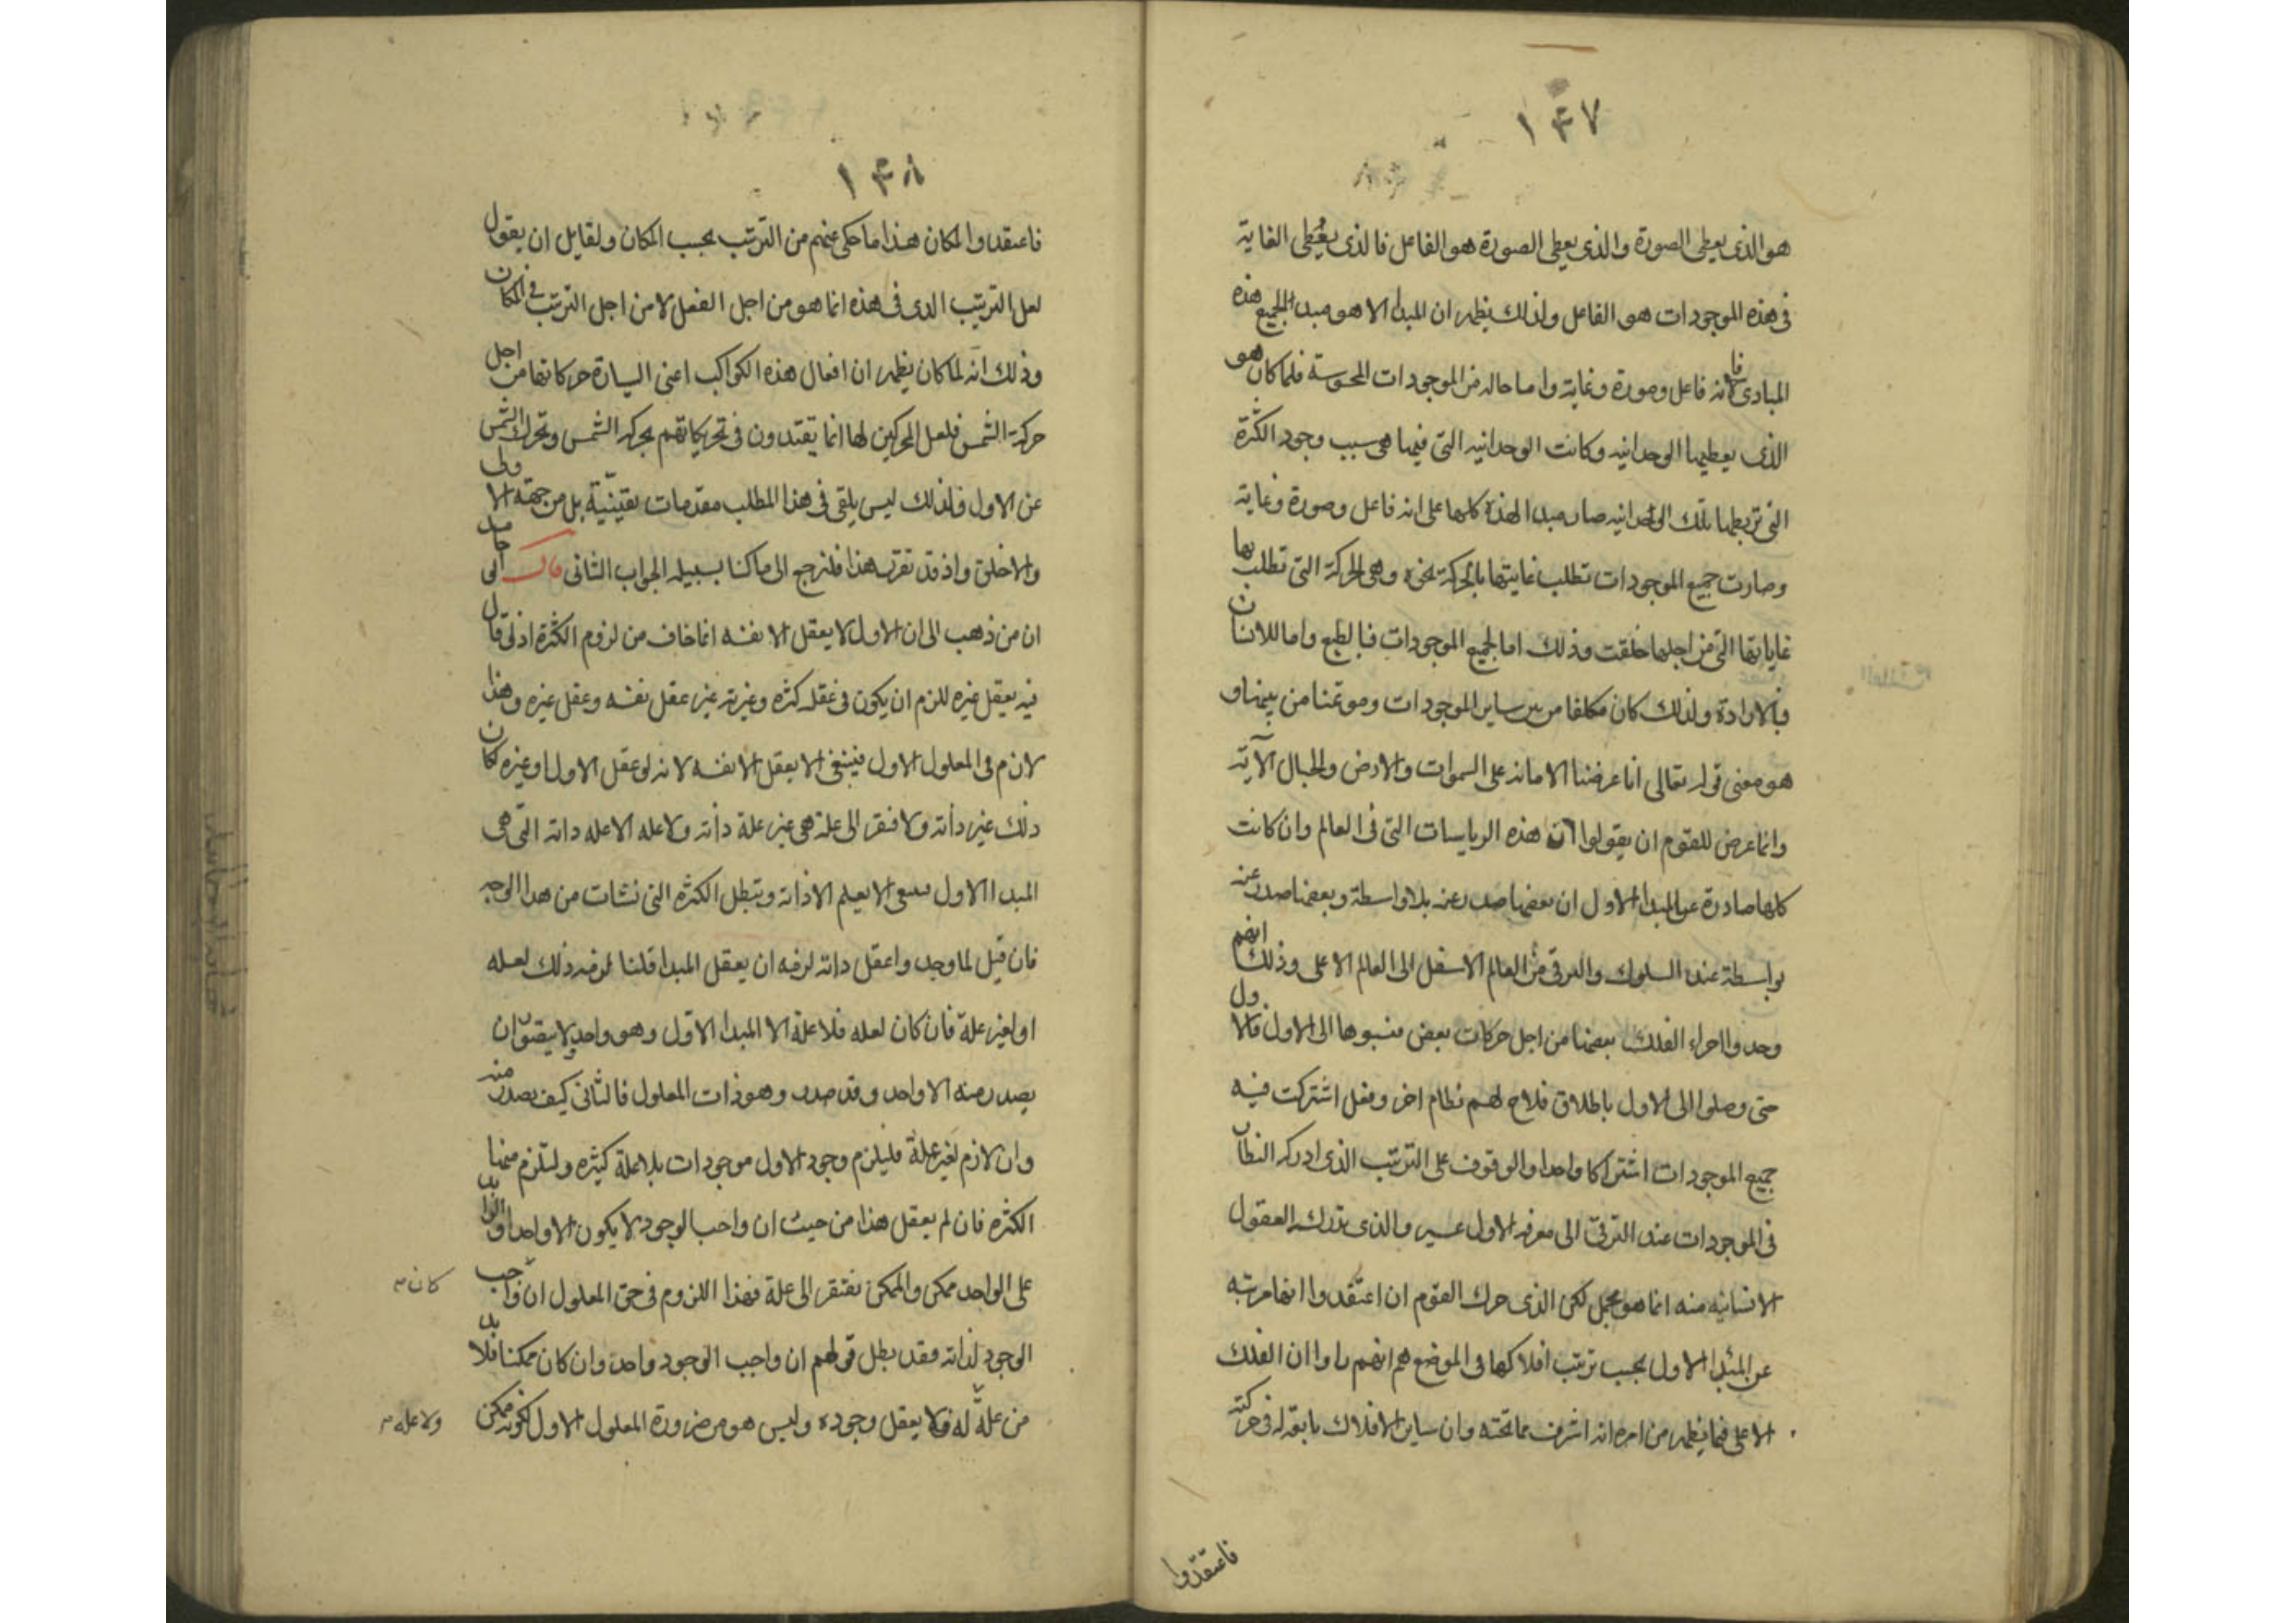 ١٤٧
هو الذى يعطى الصورة والذى يعطى الصورة هو الفاعل فالذى يعطى الغاية
فى هذه الموجودات هو الفاعل ولذلك يظهر ان المبدا الا هو مبدا لجميع هذه
المبادى فانه فاعل وصورة وغاية واما حاله من الموجودات المحسوسة فلما كان هو
الذى يعطيها الوحدانيه وكانت الوحدانيه التى فيها هى سبب وجود الكثرة
التى تربطها تلك الوحدانيه صار مبدا لهذه كلها على انه فاعل وصورة وغاية
وصارت جميع الموجودات تطلب غايتها بالحركة نحوه وهى الحركة التى تطلب بها
غاياتها التى من اجلها خلقت وذلك اما لجميع الموجودات فبالطبع واما للانسان
فبالارادة ولذلك كان مكلفا من بين ساير الموجودات وموتمنا من بينها و
هو معنى قوله تعالى انا عرضنا الامانه على السموات والارض والجبال الآية
وانما عرض للقوم ان يقولوا ان هذه الرياسات التى فى العالم وان كانت
كلها صادرة عن المبدا الاول ان بعضها صدر عنه بلا واسطة وبعضها صدر عنه
بواسطة عند السلوك والترقى من العالم الاسفل الى العالم الاعلى وذلك انهم
وجدوا اجزاء الفلك بعضها من اجل حركات بعض فنسبوها الى الاول فالاول
حتى وصلوا الى الاول باطلاق فلاح لهم نظام اخر وفعل اشتركت فيه
جميع الموجودات اشتراكا واحدا والوقوف على الترتيب الذى ادركه النظار
فى الموجودات عند الترقى الى معرفة الاول عسير والذى تدركه العقول
الانسانيه منه انما هو مجمل لكن الذى حرك القوم ان اعتقدوا انها مرتبه
عن المبدا الاول بحسب ترتيب افلاكها فى الموضع هم انهم راوا ان الفلك
الاعلى فيما يظهر من امره انه اشرف مما تحته وان ساير الافلاك تابعة له فى حركته
فاعتقدوا
١٤٨
فاعتقدوا لمكان هذا ما حكى عنهم من الترتيب بحسب المكان ولقايل ان يقول
لعل الترتيب الذى فى هذه انما هو من اجل الفعل لا من اجل الترتيب فى المكان
وذلك انه لما كان يظهر ان افعال هذه الكواكب اعنى السيارة حركاتها من اجل
حركة الشمس فلعل المحركين لها انما يقتدون فى تحريكاتهم بحركه الشمس وتحرك الشمس
عن الاول فلذلك ليس يلقى فى هذا المطلب مقدمات يقينية بل من جهة الاولى
والاخلق واذ قد تقرر هذا فلنرجع الى ما كنا بسبيله الجواب الثانى قال ابو حامد
ان من ذهب الى ان الاول لا يعقل الا نفسه انما خاف من لزوم الكثرة اذ لو قال
فيه يعقل غيره للزم ان يكون فى عقله كثره وغيرته غير عقل نفسه وعقل غيره وهذا
لازم فى المعلول الاول فينبغى الا يعقل الا نفسه لانه لو عقل الاول او غيره لكان
ذلك غير ذاته ولافتقر الى علة هى غير علة ذاته ولا عله الا عله ذاته التى هى
المبدا الاول فينبغى الا يعلم الا ذاته وتبطل الكثره التى نشات من هذا الوجه
فان قيل لما وجد واعقل ذاته لزمه ان يعقل المبدا قلنا لزمه ذلك لعله
او لغير علة فان كان لعله فلا علة الا المبدا الاول وهو واحد لا يتصور ان
يصدر منه الا واحد وقد صدر وهو ذات المعلول فالثانى كيف يصدر منه
وان لازم لغير علة فليلزم وجود الاول موجودات بلا علة كثيره ولتلزم منها
الكثره فان لم يعقل هذا من حيث ان واجب الوجود لا يكون الا واحدا والزايد
على الواحد ممكن والممكن يفتقر الى علة فهذا اللزوم فى حق المعلول ان واجب
كان
الوجود لذاته فقد بطل قولهم ان واجب الوجود واحد وان كان ممكنا فلا بد
من علة له فلا يعقل وجوده وليس هو من ضرورة المعلول الاول لكونه ممكن
ولا عله